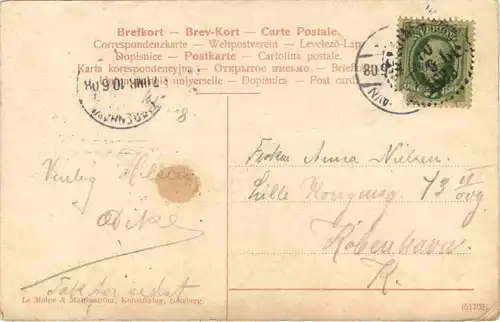 Brefkort — Brev-Kort — Carte Postale.
Correspondenzkarte — Weltpostverein — Levelező-Lap
Dopisnice — Postkarte — Cartolina postale.
Karta korespondencyjna — Открытое письмо. — Briefk
universelle — Dopisnica — Post card
SVERIGE
10.6.08
KJØBENHAVN
Frøken Anna Nielsen.
Lille Kongensg.
København
K.
Venlig Hilsen
Tak for sidst
Le Moine & Malmström, Konstförlag, Göteborg.
(6170B)